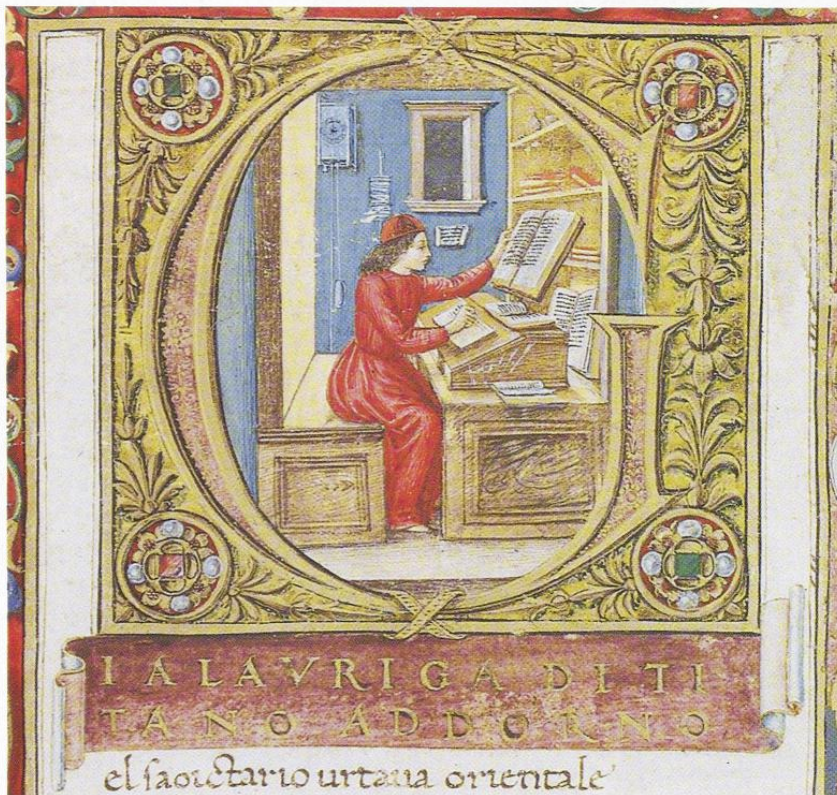 GIA LAVRIGA DI TI
TANO ADDORNO
el sagictario urtaua orientale